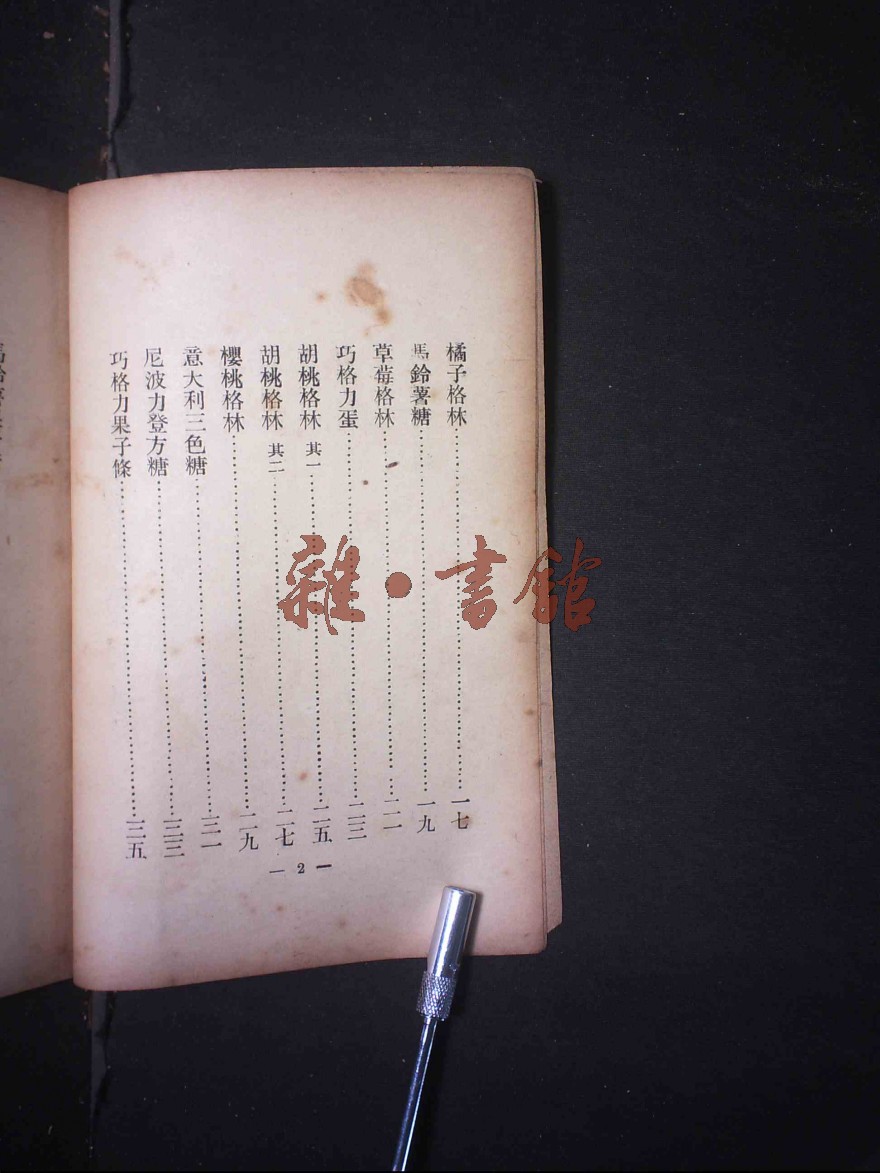 橘子格林……一七
馬鈴薯糖……一九
草莓格林……二一
巧格力蛋……二三
胡桃格林 其一……二五
胡桃格林 其二……二七
櫻桃格林……二九
意大利三色糖……三一
尼波力登方糖……三三
巧格力果子條……三五
— 2 —
雜·書館